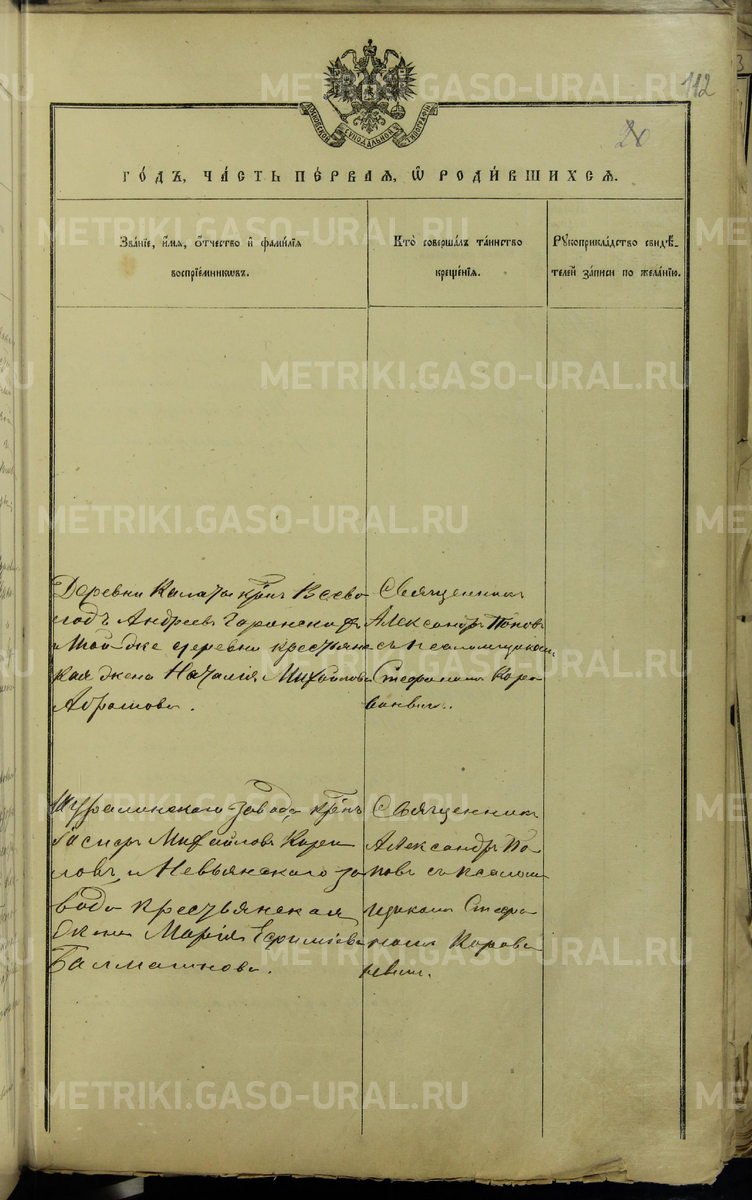 112
20
МОСКОВСКОЙ СѴНОДАЛЬНОЙ ТИПОГРАФІИ
ГО́ДЪ, ЧА́СТЬ ПЕ́РВАѦ, Ѽ РОДИ́ВШИХСѦ.
Зва́ніе, и́мѧ, ѻ҆́тчество и҆ фами́лїѧ
воспрїе́мникѡвъ.
Кто̀ соверша́лъ та́инство
креще́нїѧ.
Рꙋкоприкла́дство свидѣ́-
телей за́писи по жела́нїю.
Деревни Калаты крнъ Всево
лодъ Андреевъ Гаранскій
и той-же деревни крестьянс
кая жена Наталія Михайлова
Абрамова.
Священникъ
Александръ Поповъ
съ псаломщикомъ
Стефаномъ
Шуралинскаго завода крнъ
Михайловъ
ловъ и Невьянскаго за
вода крестьянская
жена Марія Евфиміева
Балмашнова.
Священникъ
Александръ По
повъ съ псалом
щикомъ Стефа
номъ
METRIKI.GASO-URAL.RU